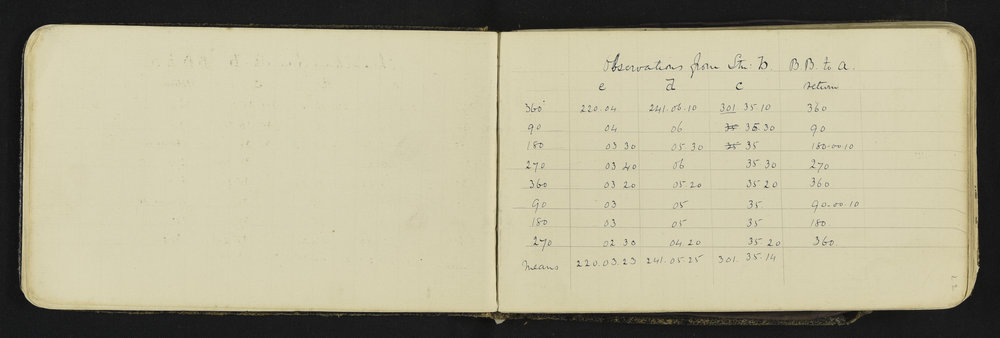 Observations from Stn: b. B.B. to a.
e d c return
360° 220.04 241.06.10 301 35 10 360
90 04 06 35 35 30 90
180 03 30 05.30 35 35 180.00.10
270 03 40 06 35 30 270
360 03 20 05 20 35 20 360
90 03 05 35 90.00.10
180 03 05 35 180
270 02 30 04.20 35 20 360
means 220.03.23 241.05.25 301. 35.14